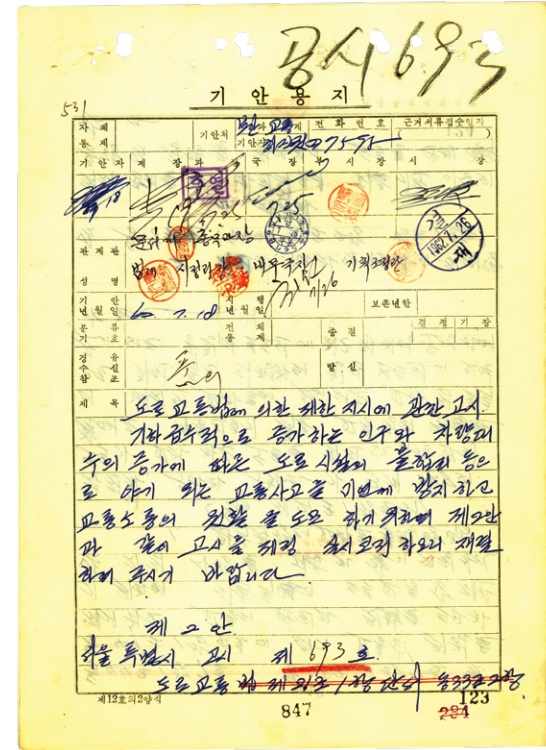 공시693
기안용지
531
자체
통제
기안처
전화번호
근거서류접수일자
기안자 계장 과장 국장 부시장 시장
18
7.25
결
1962.7.26
재
관계관
성명
기획조정관
7/26
기안
년월일
60 7. 18
시행
년월일
보존년한
분류
기호
전체
통제
종결
결정 기장
경유
수신
참조
발신
제목
도로교통법에 의한 제한 지시에 관한 고시
기하급수적으로 증가하는 인구와 차량대
수의 증가에 따른 도로시설의 불합리 등으
로 야기 되는 교통사고를 미연에 방지하고
교통소통의 원활을 도모 하기 위하여 제2안
과 같이 고시를 제정 실시코저 하오니 재결
하여 주시기 바랍니다.
제2안
서울특별시 고시 제693호
도로교통법 제
제12호의2양식
847
123
284